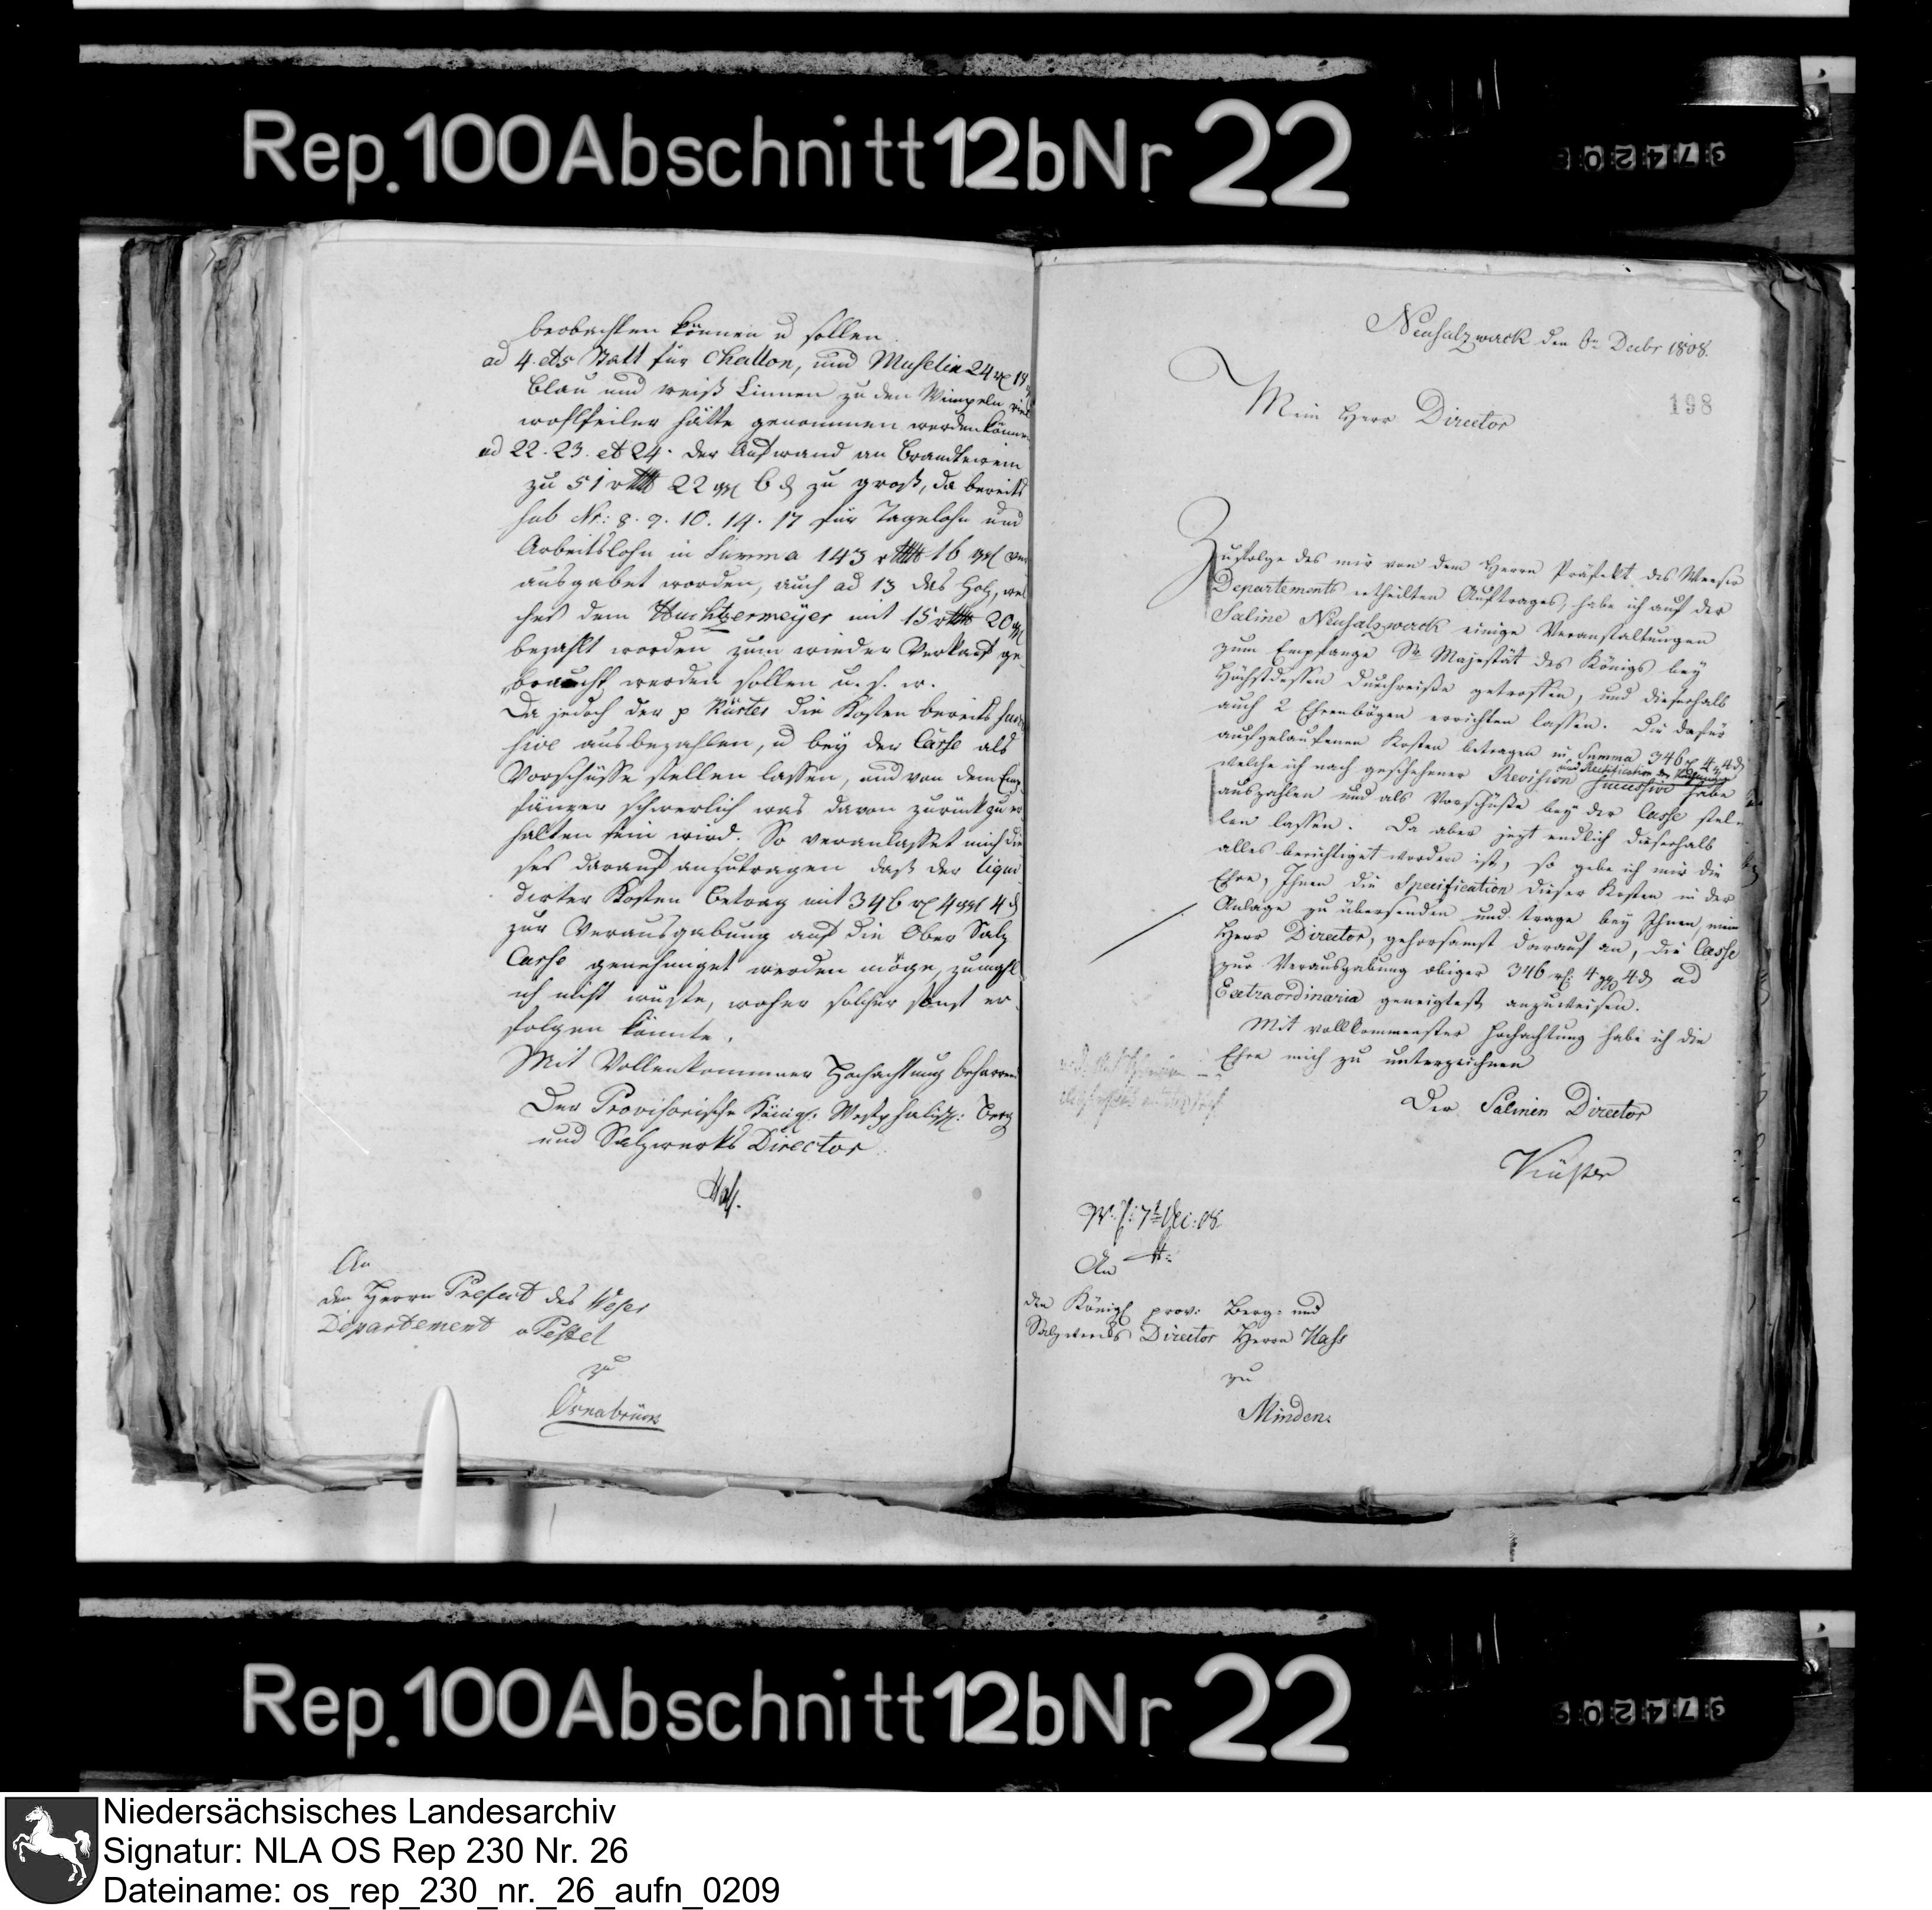 Rep. 100 Abschnitt 12b Nr 22
beobachten können u sollen.
ad 4. et 5 Statt für Chatton, und Muselin 24 rℓ 19
blau und weiß Linnen zu den Wimpeln viel
wohlfeiler hätte genommen werden können
ad 22. 23. et 24. der Aufwand an Brandtewein
zu 51 rthlr 22 ggl 6 d zu groß, da bereits
sub Nr: 8. 9. 10. 14. 17 für Tagelohn und
Arbeitslohn in Summa 143 rthlr 16 ggl ver
ausgabet worden, auch ad 13 das Holz, wel
ches dem Huchtzermeyer mit 15 rthlr 20 ggl
bezahlt worden zum wieder Verkauf ge
braucht werden sollen u. s. w.
Da jedoch der p Küster die Kosten bereits suc
sive ausbezahlen, u bey der Casse als
Vorschüsse stellen lassen, und von dem Em
fänger schwerlich was davon zurück zu er
halten sein wird. So veranlasset mich die
ses darauf anzutragen daß der liqui
dirter Kosten Betrag mit 346 rℓ 4 ggl 4 d
zur Verausgabung auf die Ober Salz
Casse genehmiget werden möge, zumahl
ich nicht wüste, woher solcher sonst er
folgen könnte.
Mit Vollenkommner Hochachtung beharren
Der Provisorische Königl. Westphälisch: Berg
und Salzwerks Director
Hass.
An
den Herrn Prefect des Weser
Departement v Pestel
zu
Osnabrück
Neusalzwerck den 6n Decbr 1808.
198
Mein Herr Director
Zufolge des mir von dem Herrn Präfekt des Weser
Departements ertheilten Auftrages, habe ich auf der
Saline Neusalzwerck einige Veranstaltungen
zum Empfange Sr Majestät des Königs bey
Höchstdessen Durchreise getroffen, und dieserhalb
auch 2 Ehrenbögen errichten lassen. Die dafür
aufgelaufenen Kosten betragen in Summa 346 rℓ 4 4 d
welche ich nach geschehener Revision und Rectification der successive habe
auszahlen und als Vorschüße bey der Casse stel-
len lassen. Da aber jezt endlich dieserhalb
alles berichtiget worden ist, so gebe ich mir die
Ehre, Ihnen die Specification dieser Kosten in der
Anlage zu übersenden und trage bey Ihnen, mein
Herr Director, gehorsamst darauf an, die Casse
zur Verausgabung obiger 346 rℓ: 4 ggl 4 d ad
Extraordinaria geneigtest anzuweisen.
Mit vollkommenster Hochachtung habe ich die
Ehre mich zu unterzeichnen
Der Salinen Director
Küster
An
den Königl prov: Berg- und
Salzwercks Director Herrn Hass
zu
Minden.
Rep. 100 Abschnitt 12b Nr 22
Niedersächsisches Landesarchiv
Signatur: NLA OS Rep 230 Nr. 26
Dateiname: os_rep_230_nr._26_aufn_0209